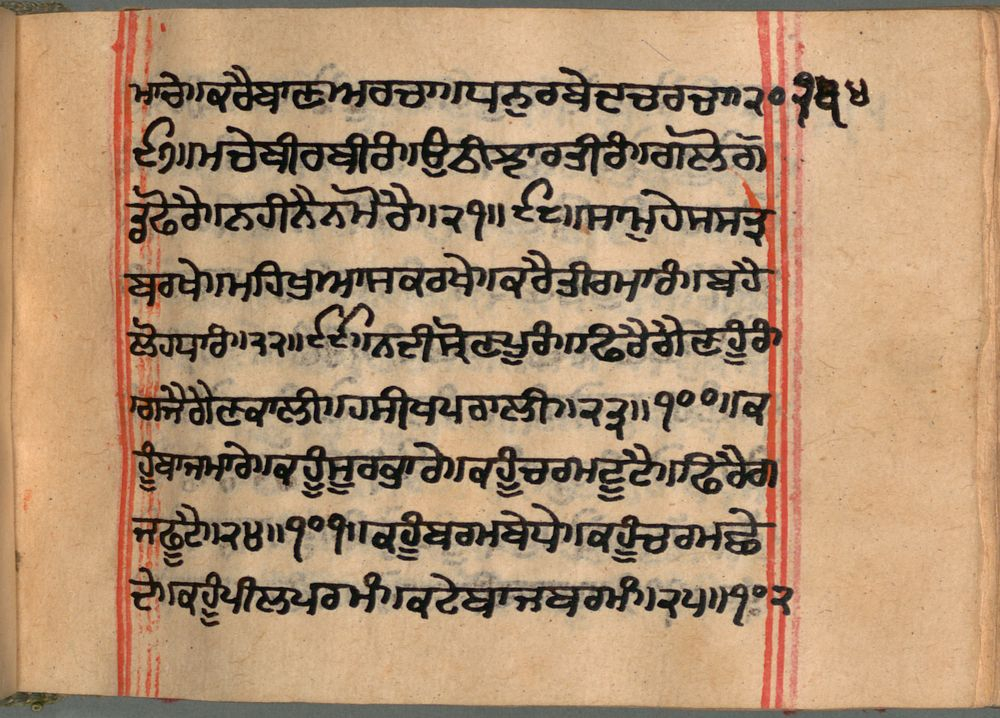 ਮਾਚੇ॥ਕਰੈਬਾਣਅਰਚਾ॥ਧਨੁਰਬੇਦਚਰਚਾ॥੨੦
੯੭॥ਮਚੇਬੀਰਬੀਰੰ॥ਉਠੀਝਾਰਤੀਰੰ॥ਗਲੋਗ
ਡੁਢੋਰੈ॥ਨਹੀਨੈਨਮੋਰੈ॥੨੧॥੯੮॥ਸਾਮੁਹੇਸਸਤ੍ਰ
ਬਰਖੇ॥ਮਹਿਖੁਆਸਕਰਖੇ॥ਕਰੈਤੀਰਮਾਰੰ॥ਬਹੈ
ਲੋਹਧਾਰੰ॥੨੨॥੯੯॥ਨਦੀਸ੍ਰੋਣਪੂਰੰ॥ਫਿਰੈਗੈਣਹੂਰੰ
ਗਜੈਗੈਣਕਾਲੀ॥ਹਸੀਖਪਰਾਲੀ॥੨੩॥੧੦੦॥ਕ
ਹੂੰਬਾਜਮਾਰੇ॥ਕਹੂੰਸੂਰਭਾਰੇ॥ਕਹੂੰਚਰਮਟੂਟੈ॥ਫਿਰੈਗ
ਜਫੂਟੈ॥੨੪॥੧੦੧॥ਕਹੂੰਬਰਮਬੇਧੇ॥ਕਹੂੰਚਰਮਛੇ
ਦੇ॥ਕਹੂੰਪੀਲਪਰਮੰ॥ਕਟੇਬਾਜਬਰਮੰ॥੨੫॥੧੦੨